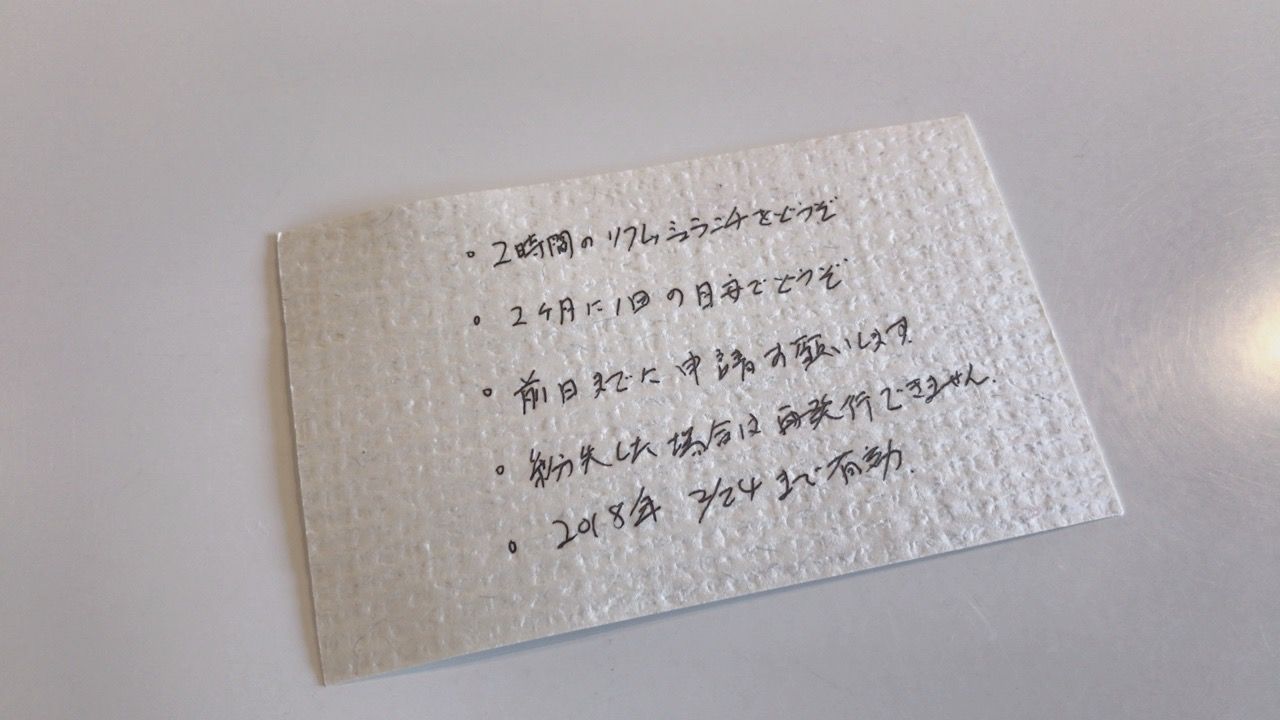 。2時間のリフレッシュランチをどうぞ
。2ヶ月に1回の目安でどうぞ
。前日までに申請お願いします
。紛失した場合は再発行できません.
。2018年 2/24まで有効.